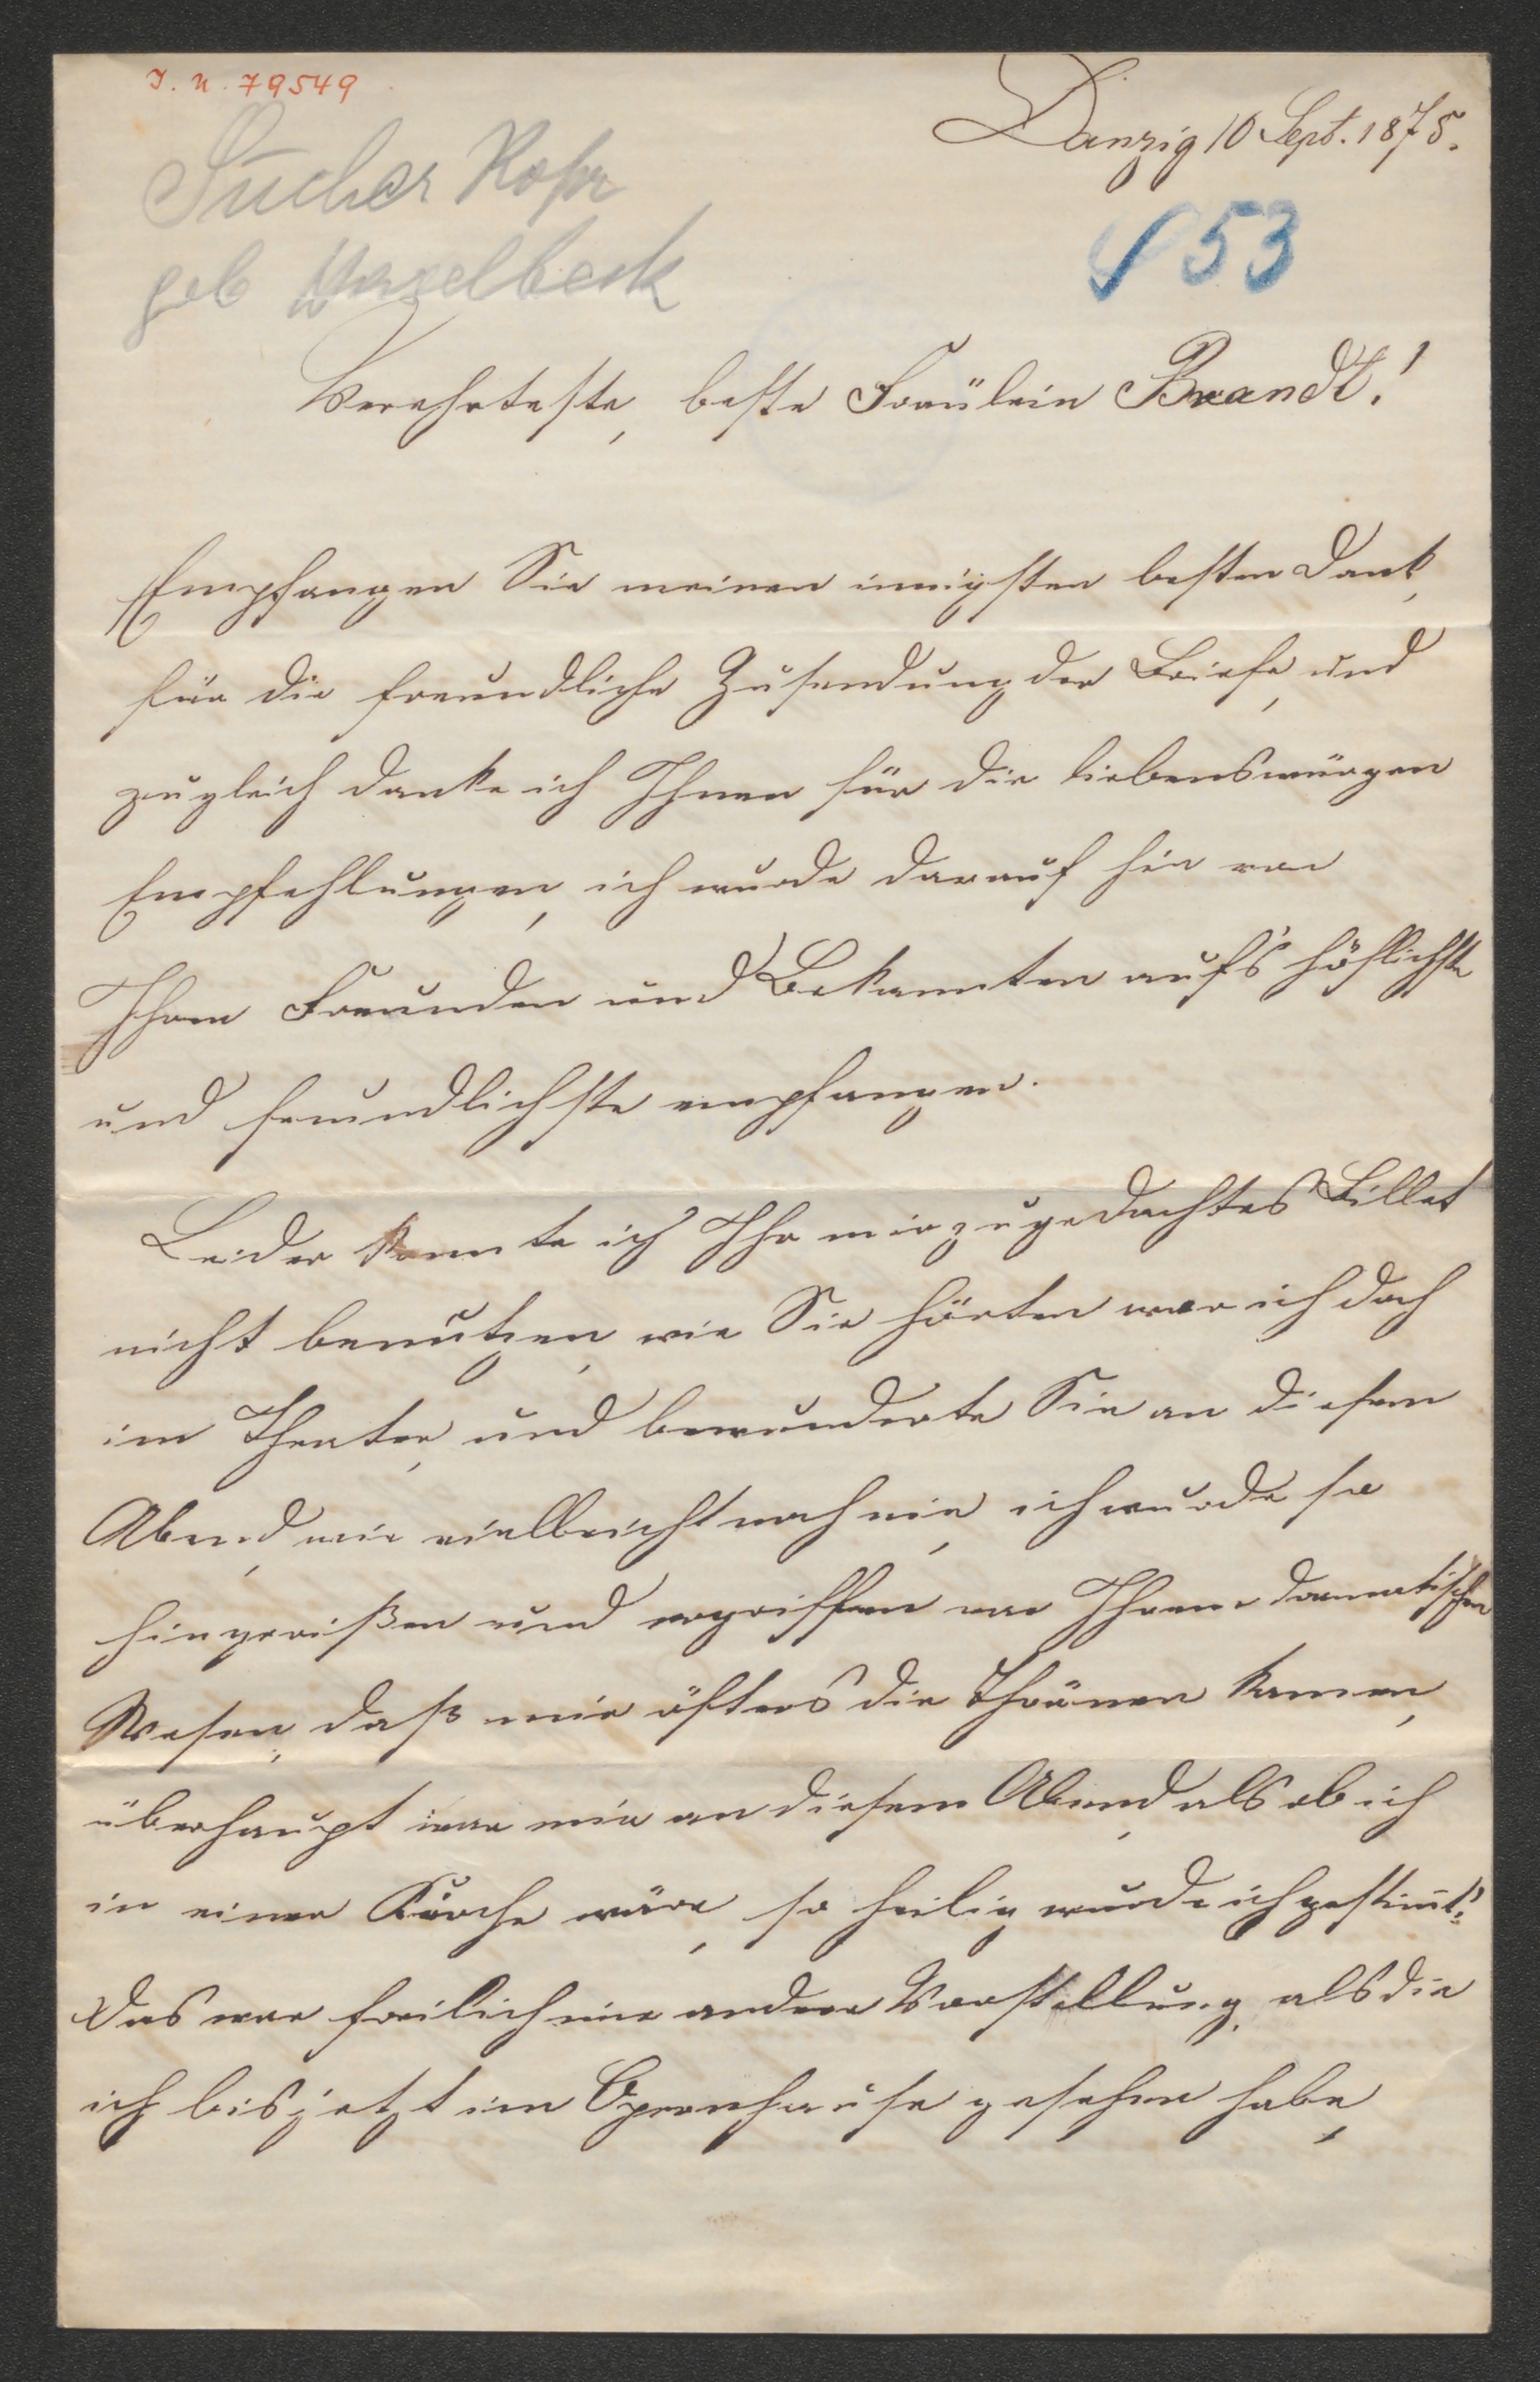 I. N. 79549
Danzig 10 Sept. 1875.
Sucher Rosa
geb Hasselbeck
53
Verehrteste, beste Fräulein Brandt!
Empfangen Sie meinen innigsten besten Dank,
für die freundliche Zusendung der Briefe, und
zugleich danke ich Ihnen für die liebenswürgen
Empfehlungen, ich wurde darauf hin von
Ihren Freunden und Bekannten auf's höflichste
und freundlichste empfangen.
Leider konnte ich Ihr mir zugedachtes Billet
nicht benutzen, wie Sie hörten war ich doch
im Theater, und bewunderte Sie an diesem
Abend, wie vielleicht noch nie, ich wurde so
hingerißen und ergriffen von Ihrem dramatischen
Wesen, daß mir öfters die Thränen kamen,
überhaupt war mir an diesem Abend, als ob ich
in einer Kirche wäre, so heilig wurde ich gestimt!
Das war freilich eine andere Vorstellung, als die
ich bis jetzt im Opernhause gesehen habe,